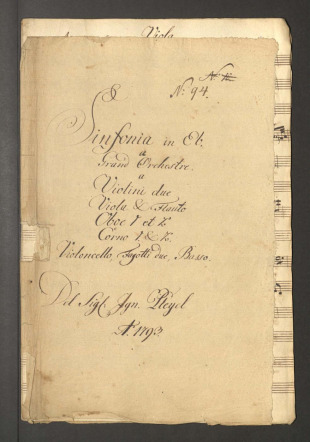 Viola
N: 94.
Sinfonia in Eb.
a
Grand Orchestre.
a
Violini due
Viola & Flauto
Oboe 1 et 2
Corno 1. & 2.
Violoncello Fagotti due, Basso.
Del Sigl. Ign. Pleyel
A: 1793.